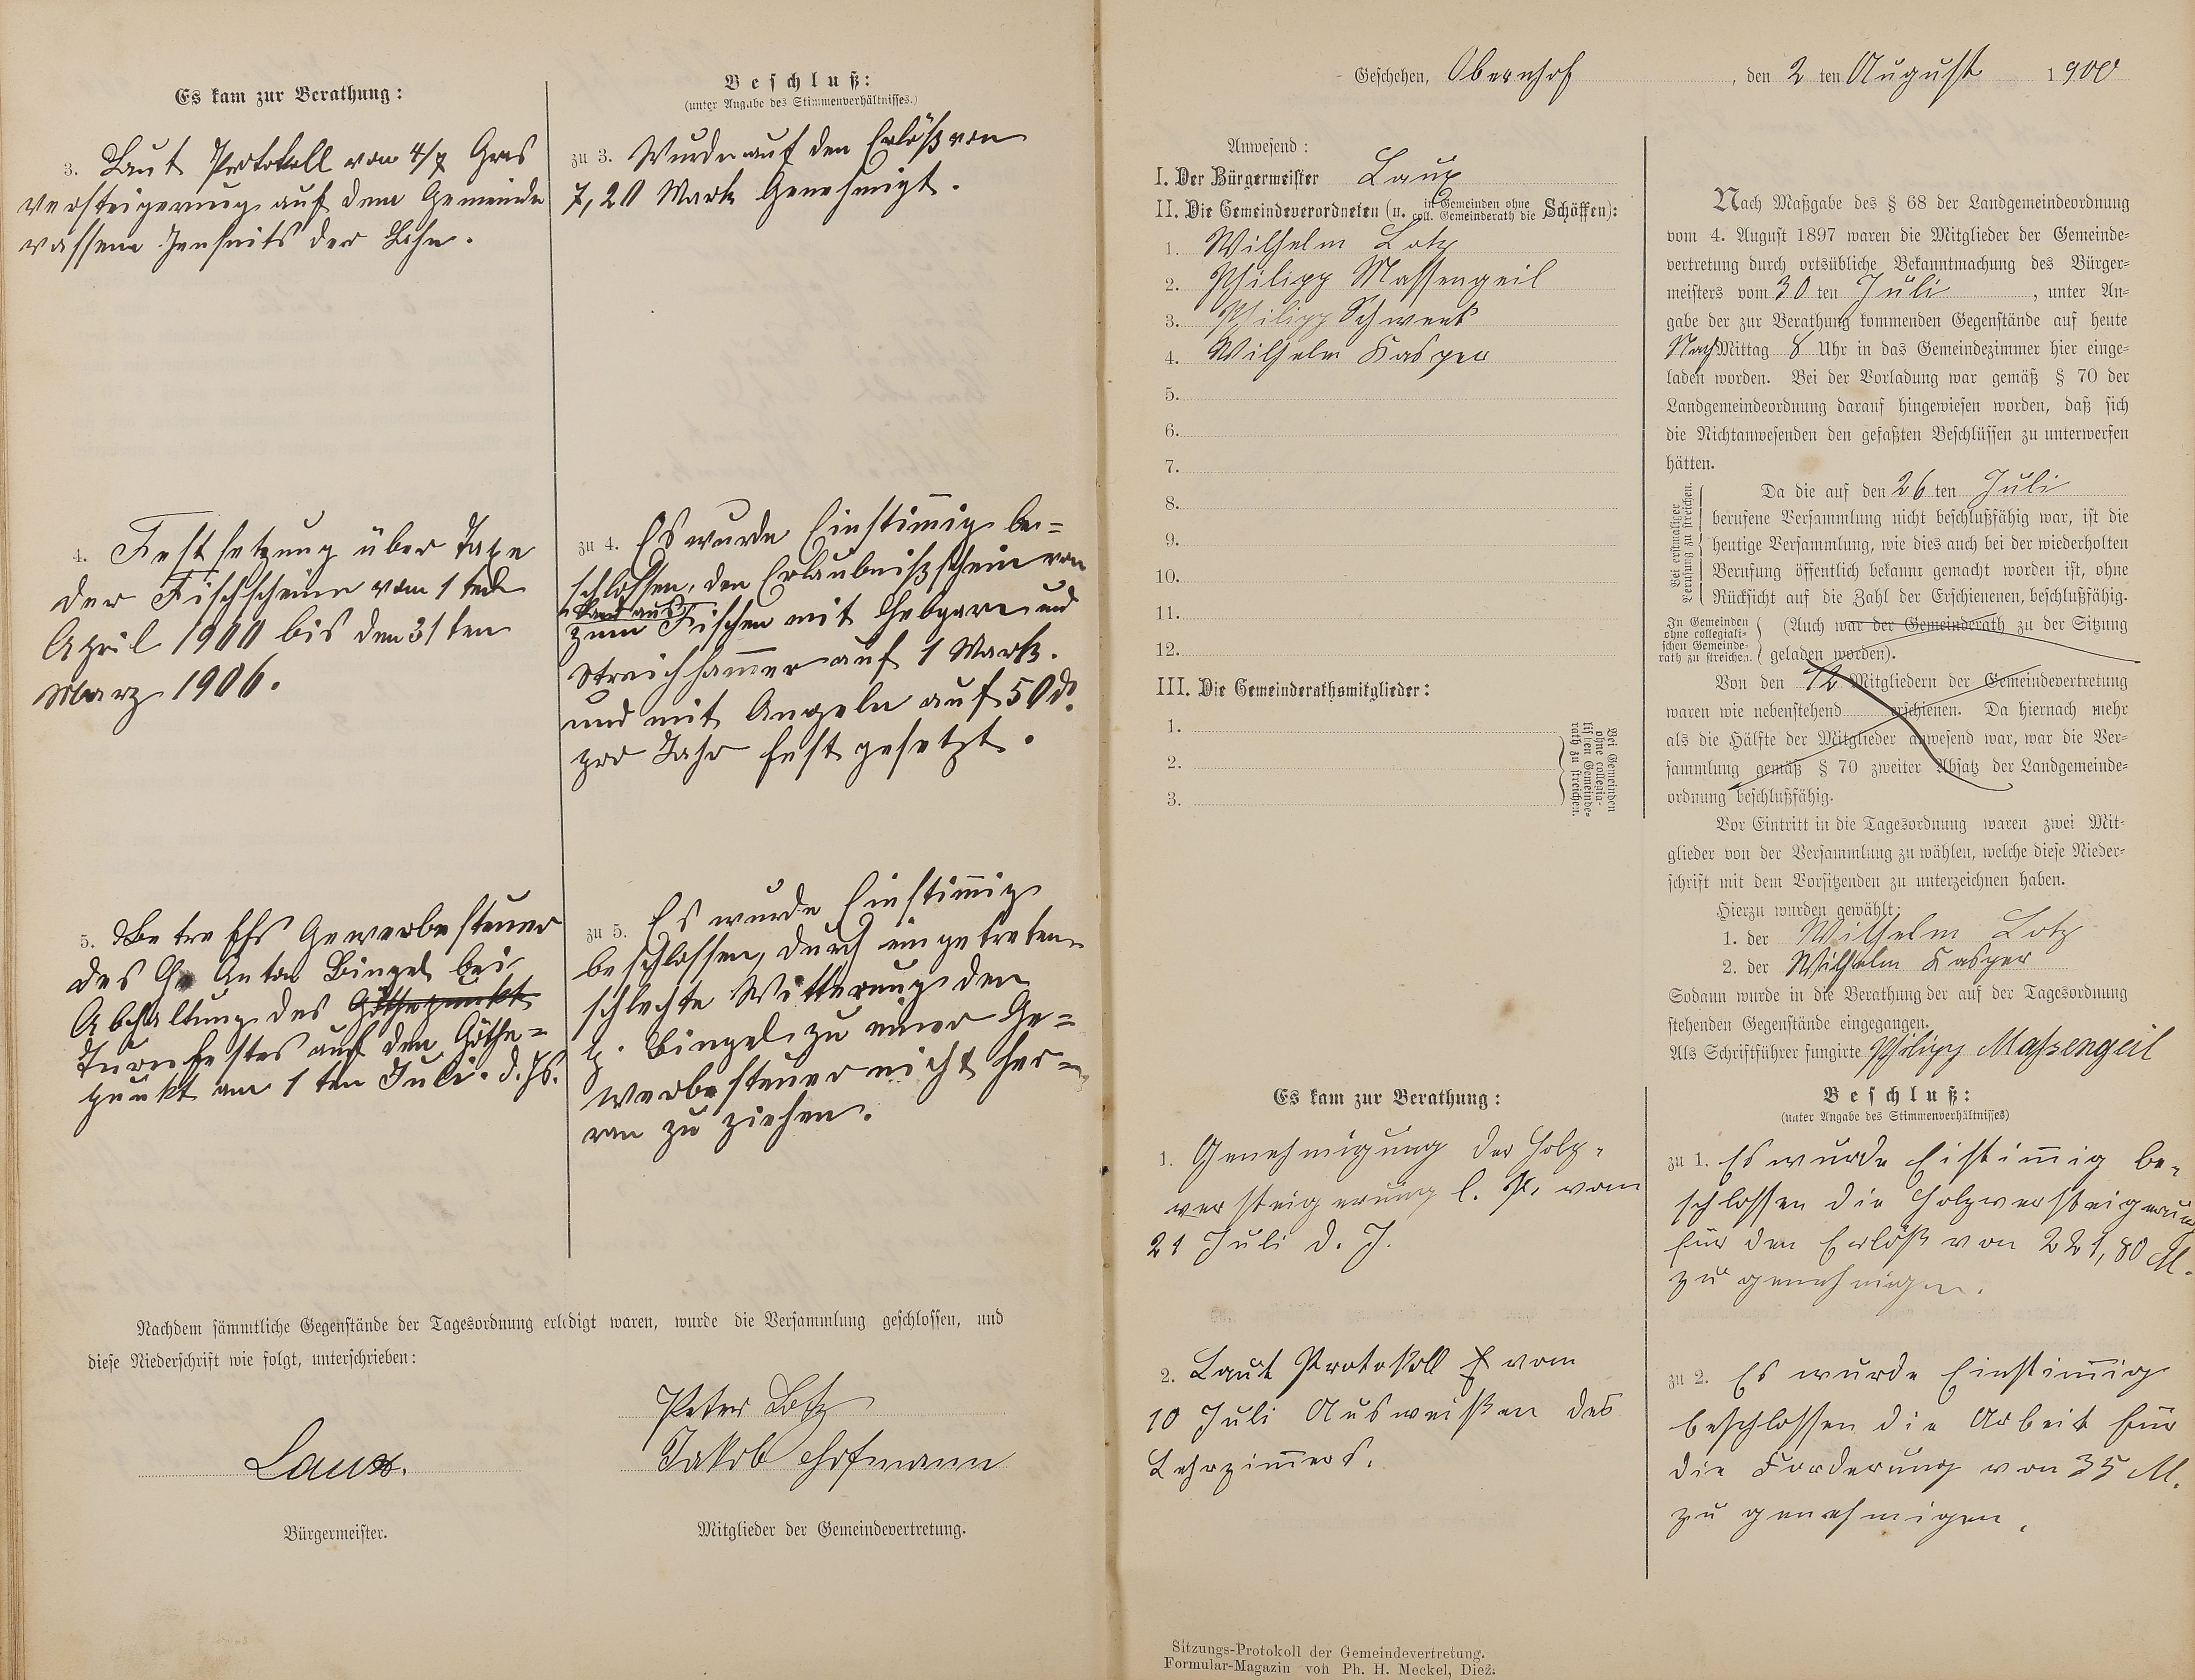 Es kam zur Berathung:
3. Laut Protokoll von 4/7 Gras
versteigerung auf dem Gemeinde
wassem Jenseits der Lahn.
4. Festsetzung über Taxe
der Fischscheine vom 1 ten
April 1900 bis den 31 ten
März 1906.
5. Betreffs Gewerbesteuer
des Anton Bingel bei
Abhaltung des Göthepunkt
Turnfestes auf den Göthe=
punkt am 1 ten Juli. d. Js.
Beschluß:
(unter Angabe des Stimmenverhältnisses.)
zu 3. Wurde auf den Erlöß von
7,20 Mark Genehmigt.
zu 4. Es wurde Einstimmig be=
schlossen, den Erlaubnißschein von
Land aus
zum Fischen mit Hebgarn und
Streichhammer auf 1 Mark.
und mit Angeln auf 50 d.
pro Jahr fest gesetzt.
zu 5. Es wurde Einstimmig
beschlossen, durch eingetretene
schlechte Witterung den
p. Bingel zu einer Ge=
werbesteuer nicht her=
ran zu ziehen.
Nachdem sämmtliche Gegenstände der Tagesordnung erledigt waren, wurde die Versammlung geschlossen, und
diese Niederschrift wie folgt, unterschrieben:
Laux.
Bürgermeister.
Peter Lotz
Jakob Hofmann
Mitglieder der Gemeindevertretung.
Geschehen, Obernhof, den 2 ten August 1900
Anwesend:
I. Der Bürgermeister Laux
II. Die Gemeindeverordneten (u. in Gemeinden ohne coll. Gemeinderath die Schöffen):
1. Wilhelm Lotz
2. Philipp Massengeil
3. Philipp Schwenk
4. Wilhelm Kasper
5.
6.
7.
8.
9.
10.
11.
12.
III. Die Gemeinderathsmitglieder:
1.
2.
3.
Bei Gemeinden
ohne collegia-
lischen Gemeinde-
rath zu streichen.
Nach Maßgabe des § 68 der Landgemeindeordnung
vom 4. August 1897 waren die Mitglieder der Gemeinde=
vertretung durch ortsübliche Bekanntmachung des Bürger=
meisters vom 30 ten Juli, unter An=
gabe der zur Berathung kommenden Gegenstände auf heute
Nach Mittag 8 Uhr in das Gemeindezimmer hier einge=
laden worden. Bei der Vorladung war gemäß § 70 der
Landgemeindeordnung darauf hingewiesen worden, daß sich
die Nichtanwesenden den gefaßten Beschlüssen zu unterwerfen
hätten.
Bei erstmaliger
Berufung zu streichen.
Da die auf den 26 ten Juli
berufene Versammlung nicht beschlußfähig war, ist die
heutige Versammlung, wie dies auch bei der wiederholten
Berufung öffentlich bekannt gemacht worden ist, ohne
Rücksicht auf die Zahl der Erschienenen, beschlußfähig.
In Gemeinden
ohne collegiali=
schen Gemeinde=
rath zu streichen.
(Auch war der Gemeinderath zu der Sitzung
geladen worden).
Von den 12 Mitgliedern der Gemeindevertretung
waren wie nebenstehend erschienen. Da hiernach mehr
als die Hälfte der Mitglieder anwesend war, war die Ver=
sammlung gemäß § 70 zweiter Absatz der Landgemeinde=
ordnung beschlußfähig.
Vor Eintritt in die Tagesordnung waren zwei Mit=
glieder von der Versammlung zu wählen, welche diese Nieder=
schrift mit dem Vorsitzenden zu unterzeichnen haben.
Hierzu wurden gewählt:
1. der Wilhelm Lotz
2. der Wilhelm Kasper
Sodann wurde in die Berathung der auf der Tagesordnung
stehenden Gegenstände eingegangen.
Als Schriftführer fungirte Philipp Massengeil
Es kam zur Berathung:
1. Genehmigung der Holz=
versteigerung l. P. vom
21 Juli d. J.
2. Laut Protokoll vom
10 Juli Ausweißen des
Lehrzimmers.
Beschluß:
(unter Angabe des Stimmenverhältnisses)
zu 1. Es wurde Eistimmig be=
schlossen die Holzversteigerung
für den Erlöß von 221,80 M.
zu genehmigen.
zu 2. Es wurde Einstimmig
beschlossen die Arbeit für
die Forderung von 35 M.
zu genehmigen.
Sitzungs-Protokoll der Gemeindevertretung.
Formular-Magazin von Ph. H. Meckel, Diez.